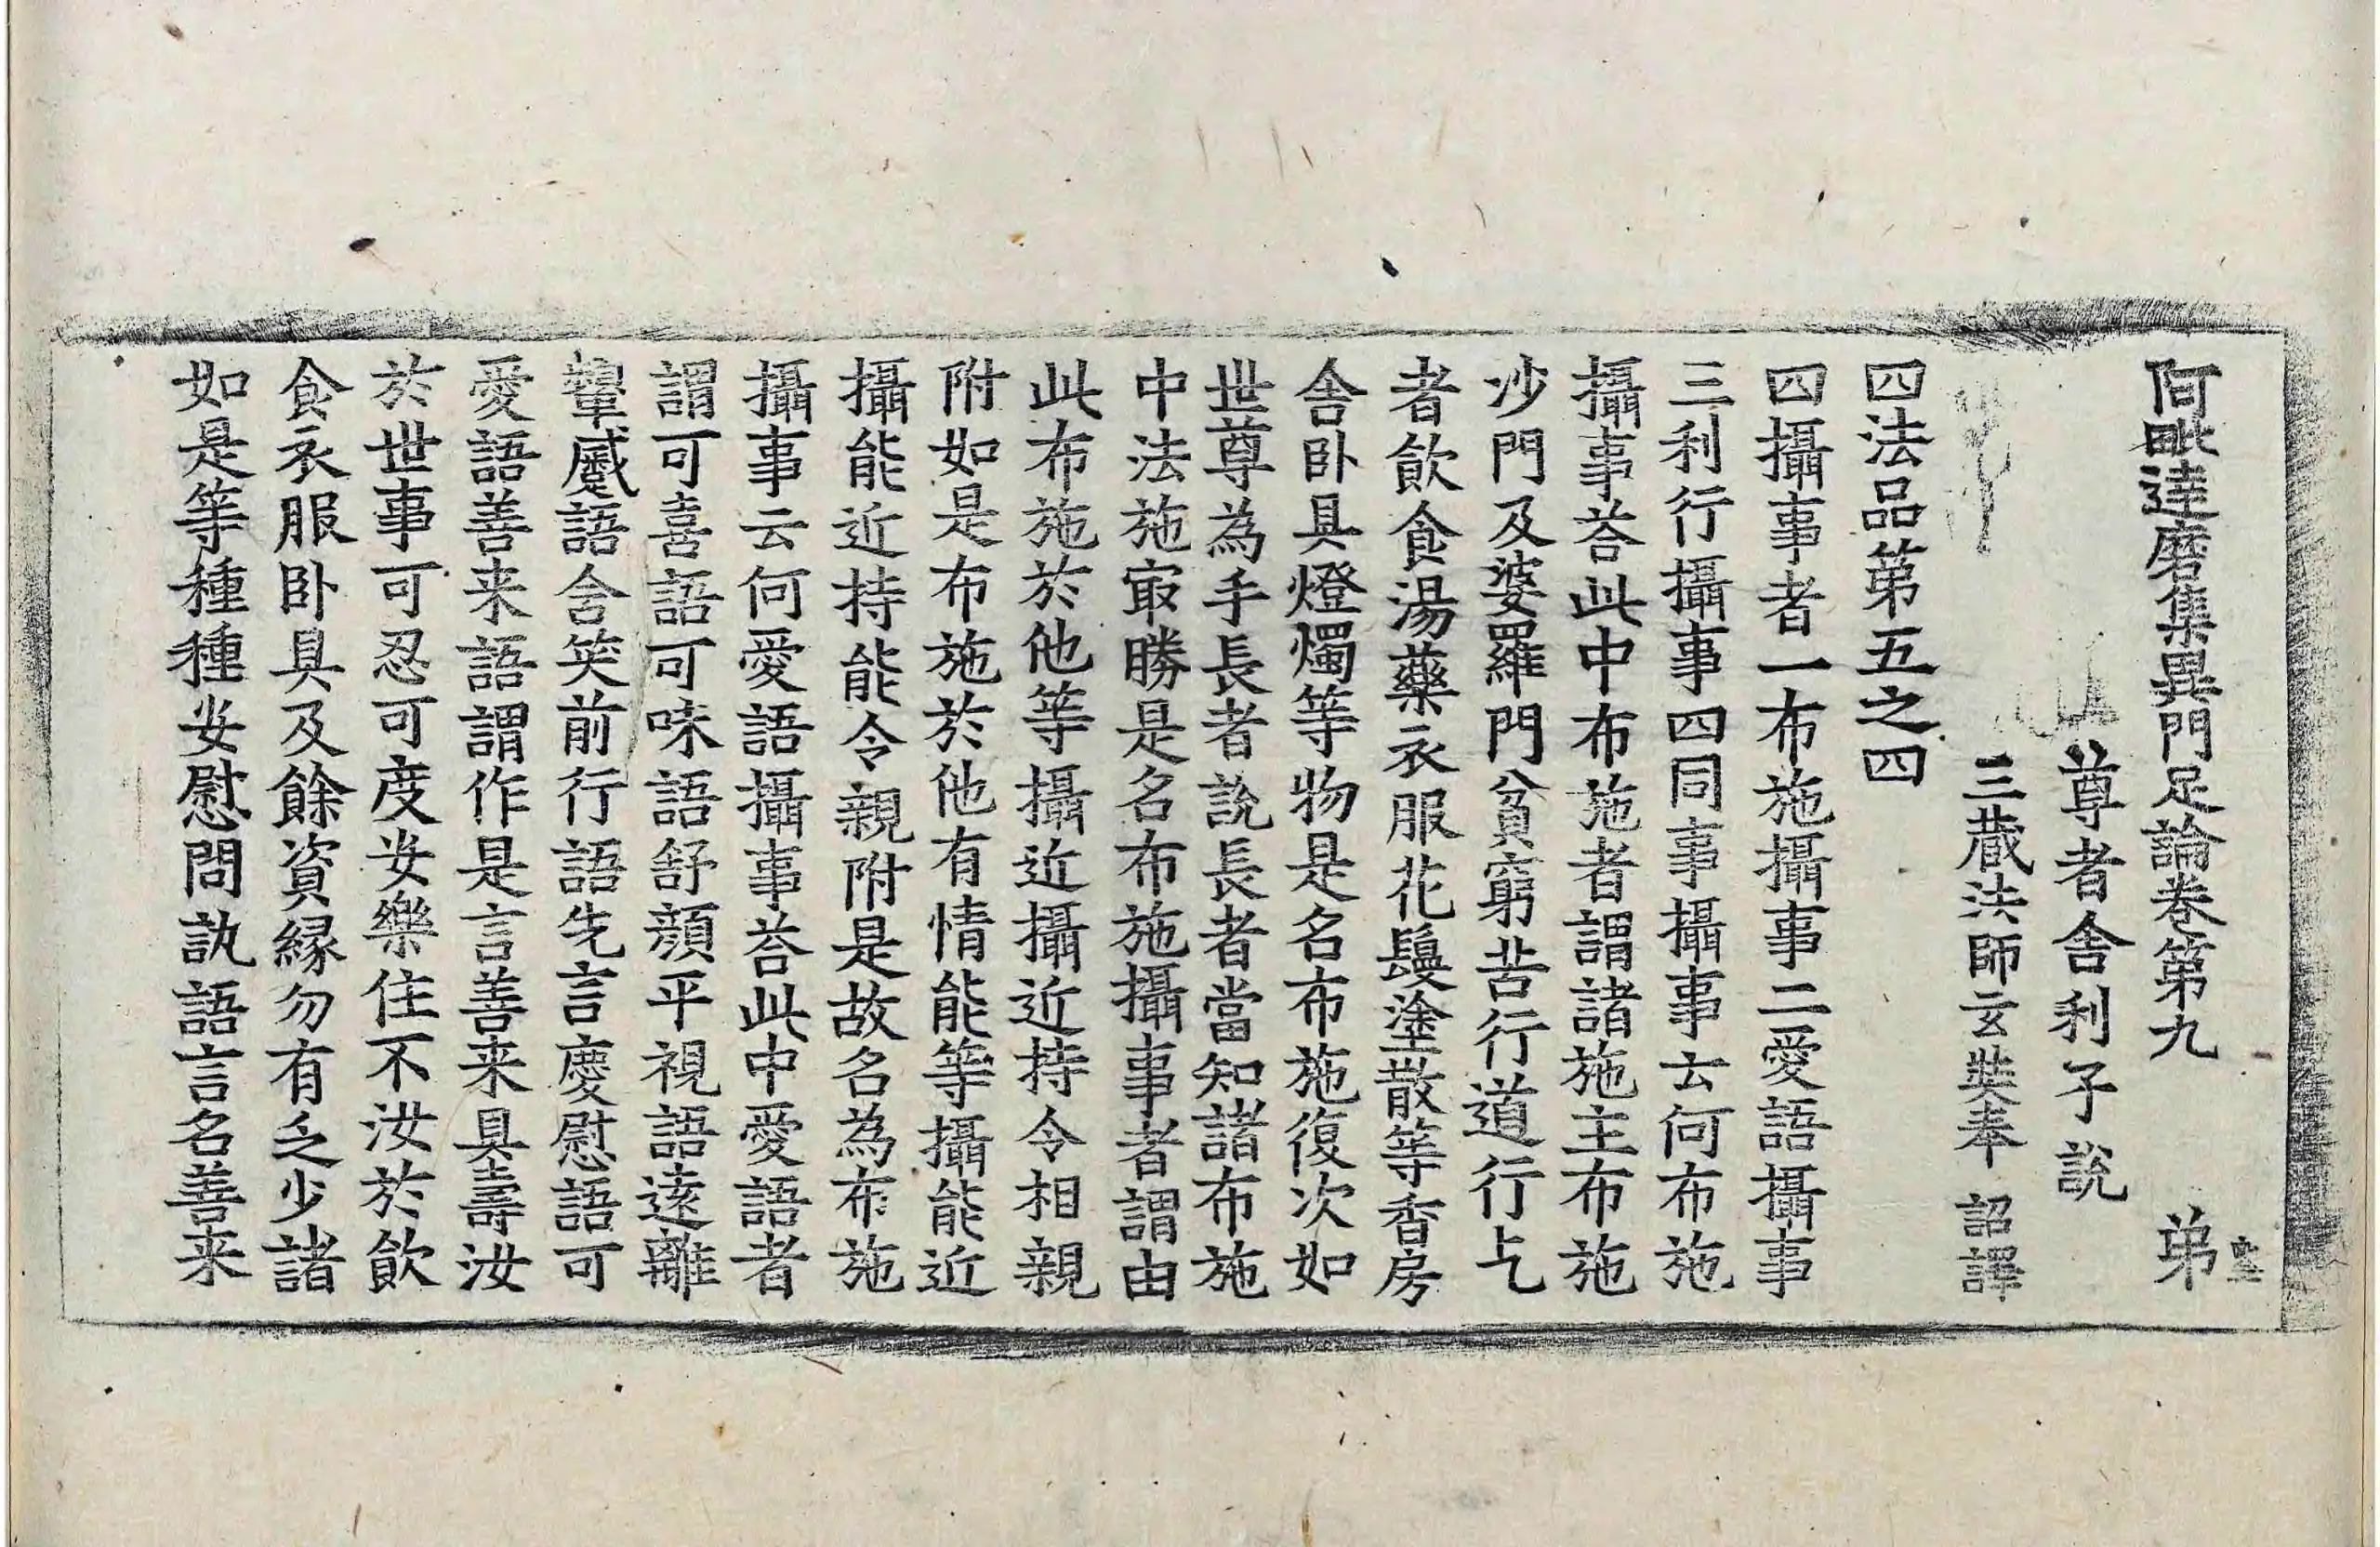 阿毗達磨集異門足論卷第九 弟
尊者舍利子說
三藏法師玄奘奉 詔譯
四法品第五之四
四攝事者一布施攝事二愛語攝事
三利行攝事四同事攝事云何布施
攝事荅此中布施者謂諸施主布施
沙門及婆羅門貧窮苦行道行乞
者飲食湯藥衣服花鬘塗散等香房
舍卧具燈燭等物是名布施復次如
世尊為手長者說長者當知諸布施
中法施㝡勝是名布施攝事者謂由
此布施於他等攝近攝近持令相親
附如是布施於他有情能等攝能近
攝能近持能令親附是故名為布施
攝事云何愛語攝事荅此中愛語者
謂可喜語可味語舒顔平視語遠離
顰蹙語含笑前行語先言慶慰語可
愛語善来語謂作是言善来具壽汝
於世事可忍可度安樂住不汝於飲
食衣服卧具及餘資緣勿有乏少諸
如是等種種安慰問訊語言名善来